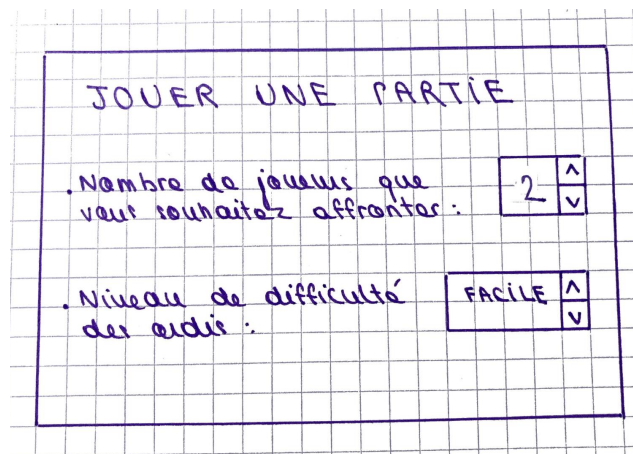 JOUER UNE PARTIE
. Nombre de joueurs que
vous souhaitez affronter :
2
. Niveau de difficulté
des ordis :
FACILE